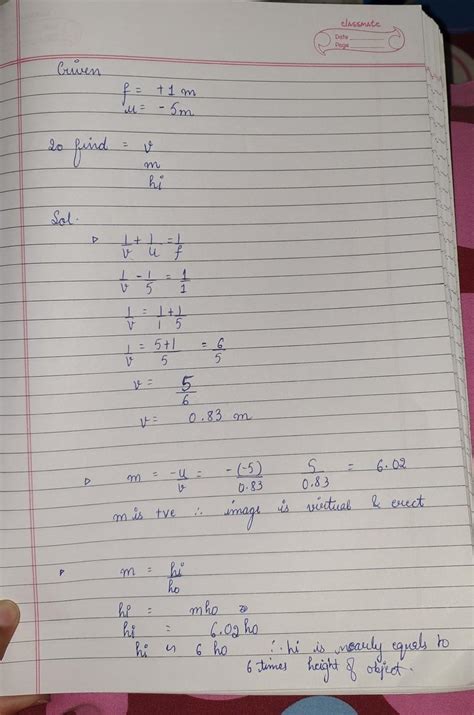 classmate
Date
Page
Given
f = +1 m
u = -5m
To find = v
m
hi
Sol.
▷ 1/v + 1/u = 1/f
1/v - 1/5 = 1/1
1/v = 1/1 + 1/5
1/v = 5+1/5 = 6/5
v = 5/6
v = 0.83 m
▷ m = -u/v = -(-5)/0.83 5/0.83 = 6.02
m is +ve ∴ image is virtual & erect
▷ m = hi/ho
hi = mho
hi = 6.02 ho
hi ≈ 6 ho ∴ hi is nearly equals to
6 times height of object.